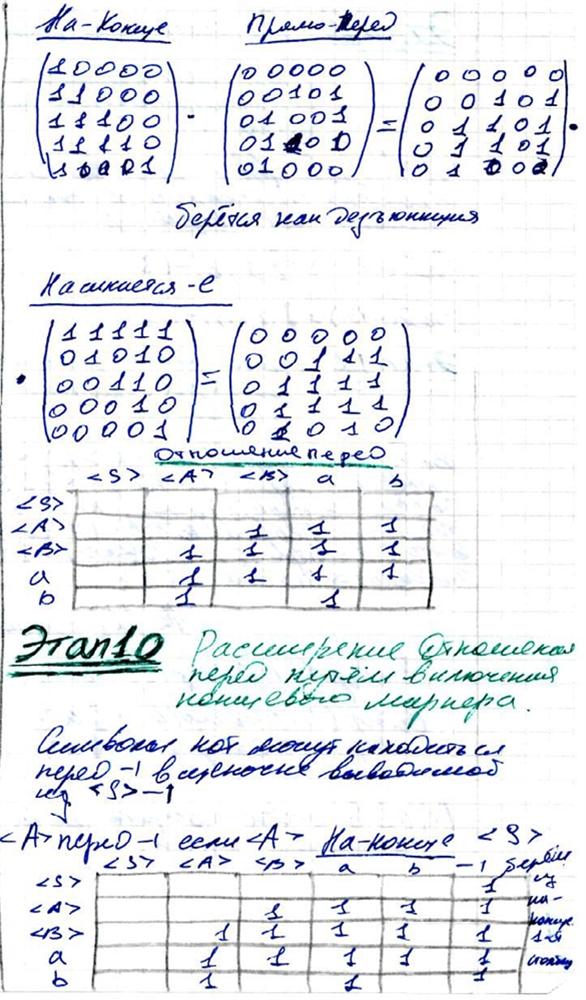 На-Конце Прямо-Перед
1 0 0 0 0 0 0 0 0 0 0 0 0 0 0
1 1 0 0 0 0 0 1 0 1 0 0 1 0 1
1 1 1 0 0 · 0 1 0 0 1 = 0 1 1 0 1 ·
1 1 1 1 0 0 1 0 0 0 1 1 0 1
1 0 0 0 1 0 1 0 0 0 0 1 0 0
берётся как дезъюнкция
Начинается-С
1 1 1 1 1 0 0 0 0 0
0 1 0 1 0 0 0 1 1 1
· 0 0 1 1 0 = 0 1 1 1 1
0 0 0 1 0 0 1 1 1 1
0 0 0 0 1 0 1 0 1 0
Отношение перед
<S> <A> <B> a b
<S>
<A> 1 1 1
<B> 1 1 1 1
a 1 1 1 1
b 1 1
Этап 10 Расширение Отношения
перед путём включения
концевого маркера.
Символы кот могут находиться
перед ⊣ в цепочке выводимой
из <S>⊣
<A> перед ⊣ если <A> На-конце <S>
<S> <A> <B> a b ⊣ берём
<S> 1 из
<A> 1 1 1 1 на-
<B> 1 1 1 1 1 конце
a 1 1 1 1 1 1-й
b 1 1 1 столбец